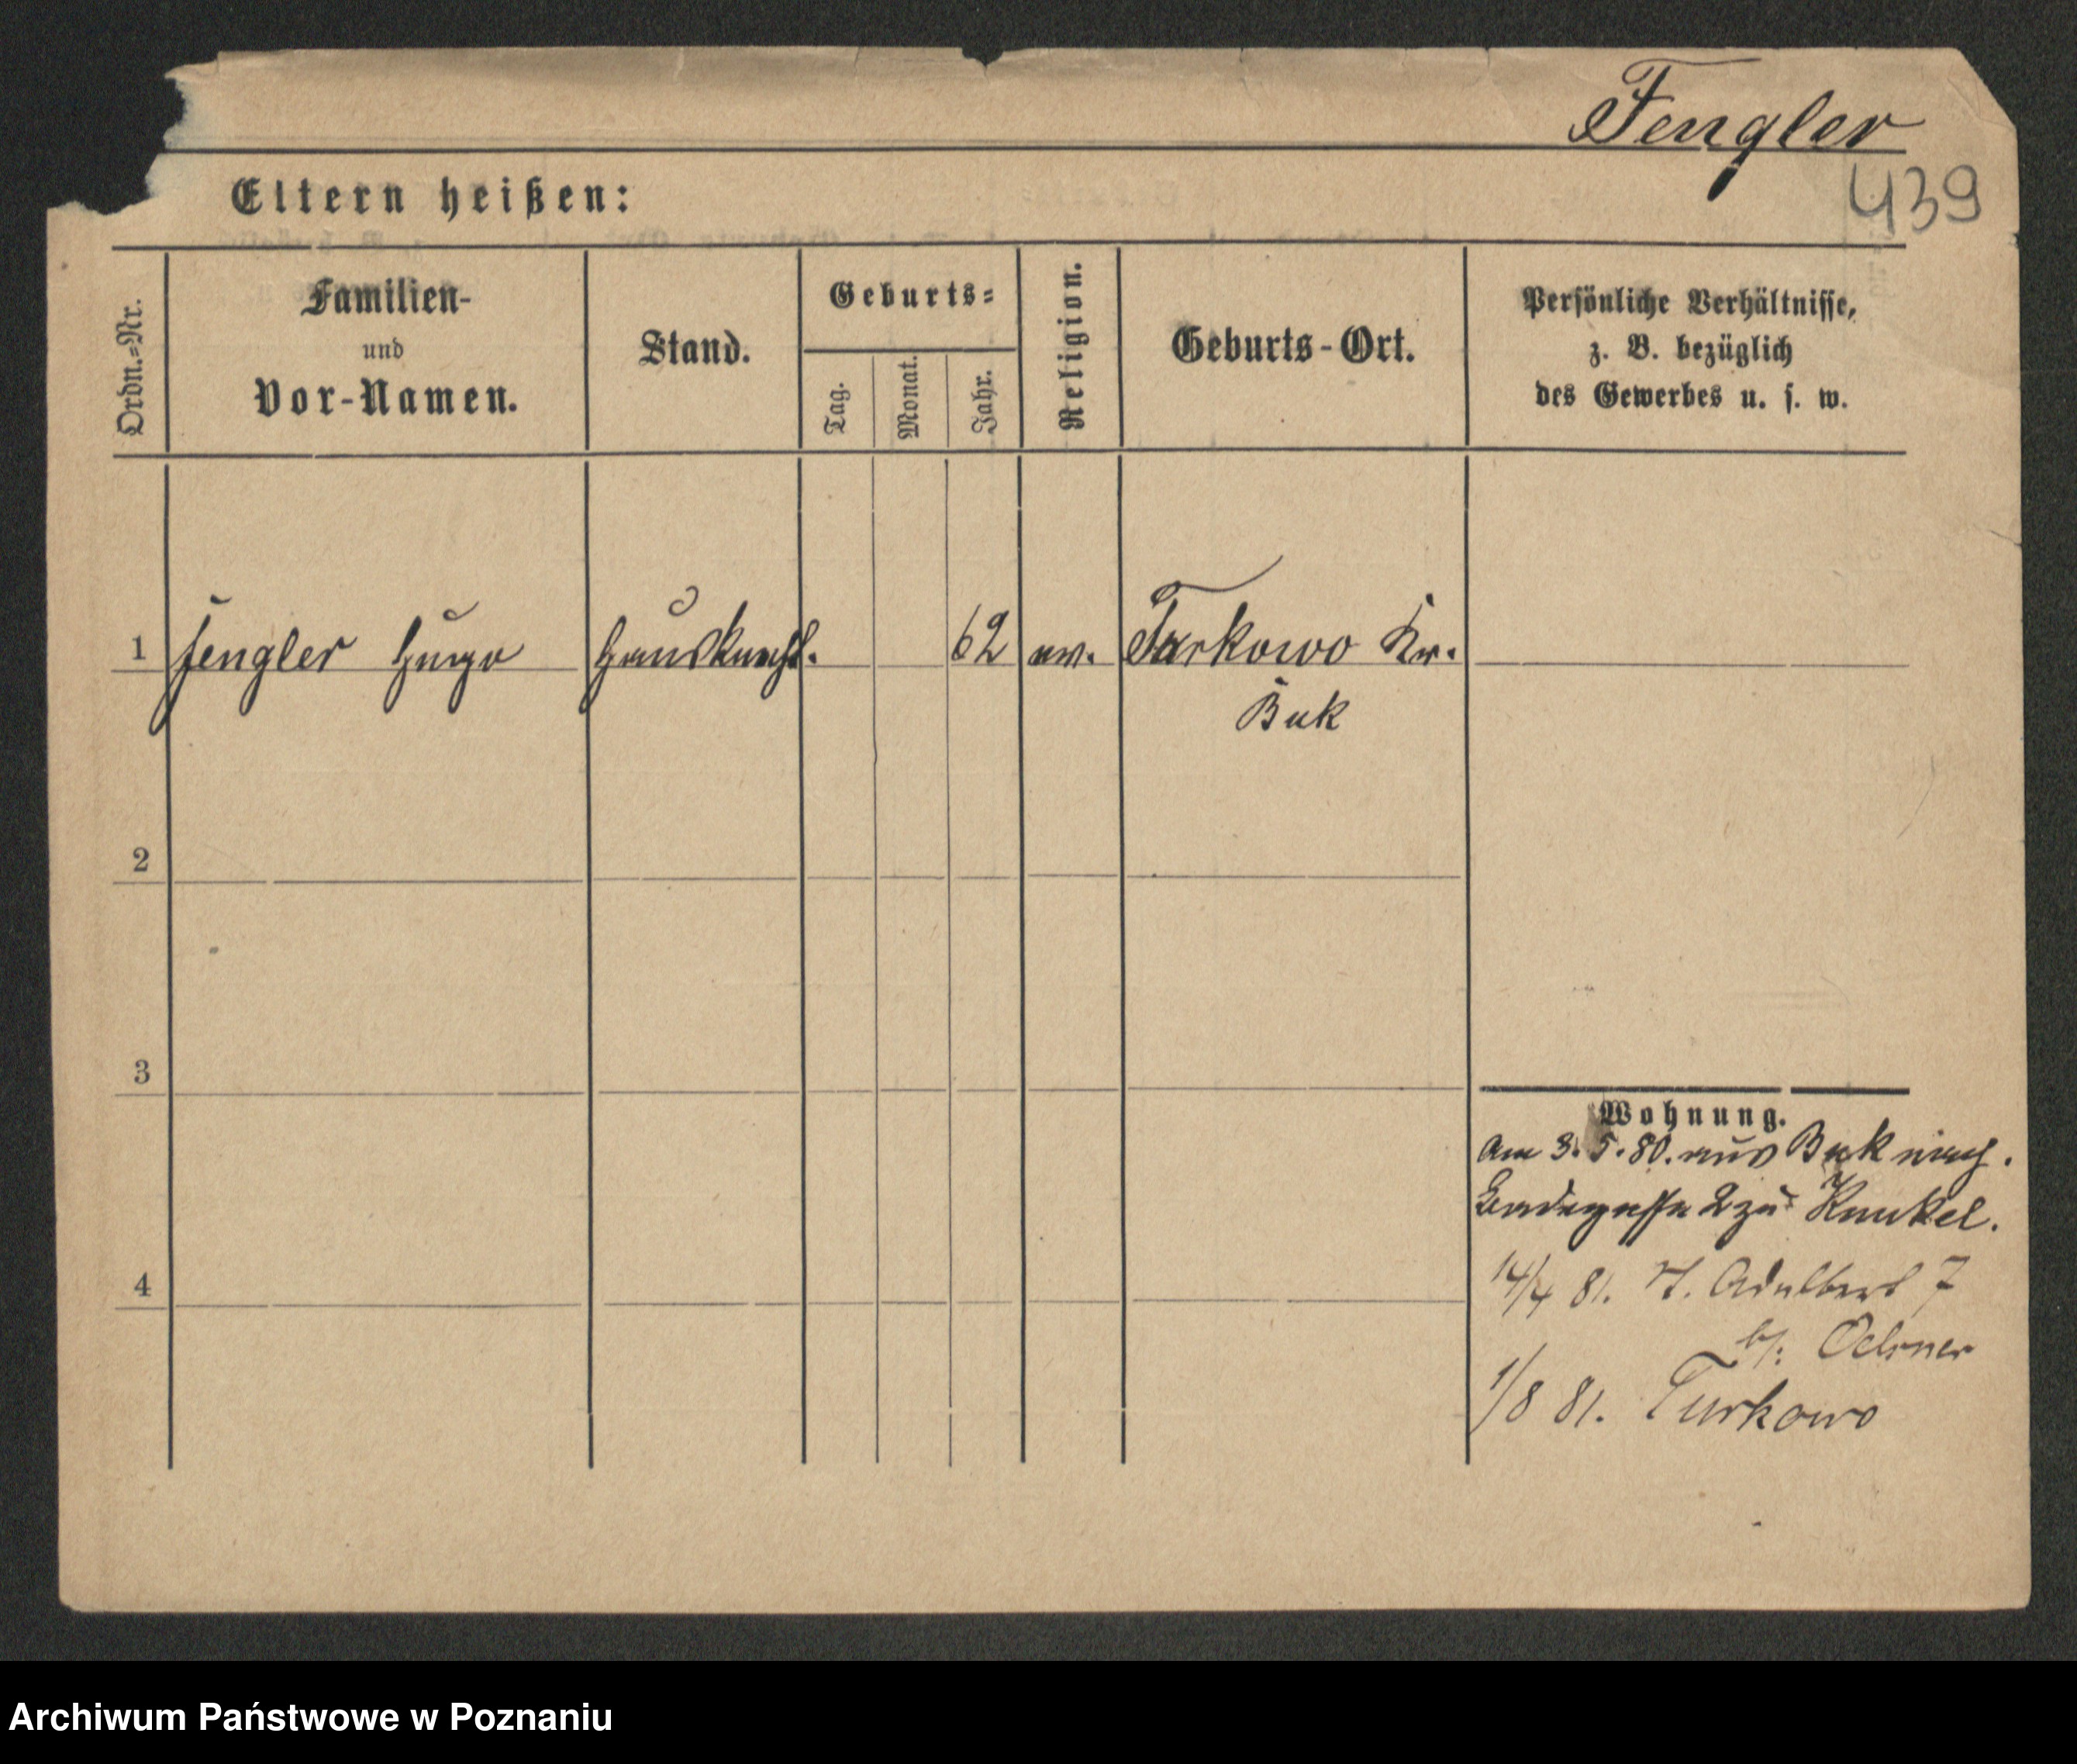 Fengler
439
Eltern heißen:
Ordn.-Nr.
Familien-
und
Vor-Namen.
Stand.
Geburts-
Tag.
Monat.
Jahr.
Religion.
Geburts-Ort.
Persönliche Verhältnisse,
z. B. bezüglich
des Gewerbes u. s. w.
1 Fengler Hugo Hausknecht. 62 ev. Turkowo Kr.
Buk
2
3
4
Wohnung.
Am 3.5.80. aus Buk
2 zu Kunkel.
14/4 81. St. Adalbert 7
b/: Oelsner
1/8 81. Turkowo
Archiwum Państwowe w Poznaniu